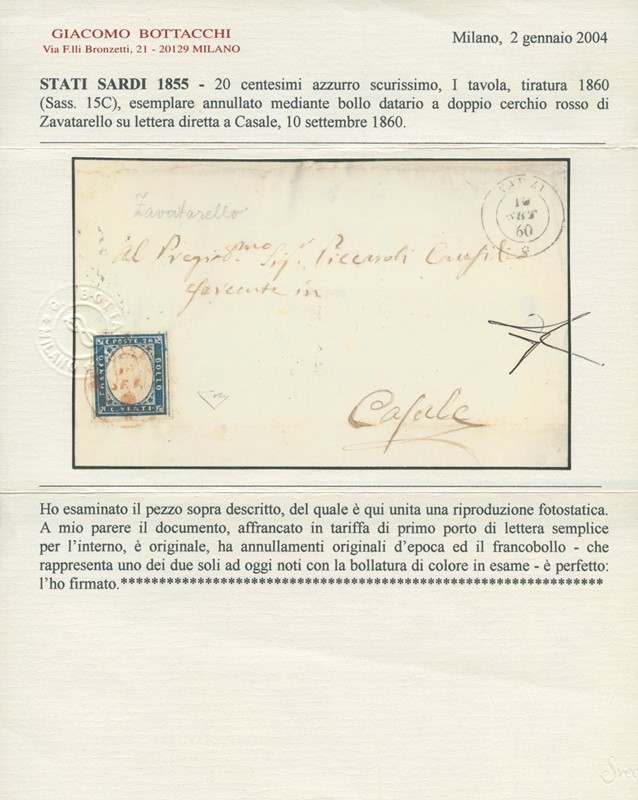 GIACOMO BOTTACCHI
Via F.lli Bronzetti, 21 - 20129 MILANO
Milano, 2 gennaio 2004
STATI SARDI 1855 - 20 centesimi azzurro scurissimo, I tavola, tiratura 1860
(Sass. 15C), esemplare annullato mediante bollo datario a doppio cerchio rosso di
Zavatarello su lettera diretta a Casale, 10 settembre 1860.
Zavatarello
10
SET
60
Al Pregio.mo Sig.r
in
Casale
G. BOTTA
MILANO
C. POSTE 20
FRANCO
BOLLO
C. VENTI
Ho esaminato il pezzo sopra descritto, del quale è qui unita una riproduzione fotostatica.
A mio parere il documento, affrancato in tariffa di primo porto di lettera semplice
per l'interno, è originale, ha annullamenti originali d'epoca ed il francobollo - che
rappresenta uno dei due soli ad oggi noti con la bollatura di colore in esame - è perfetto:
l'ho firmato.**************************************************************